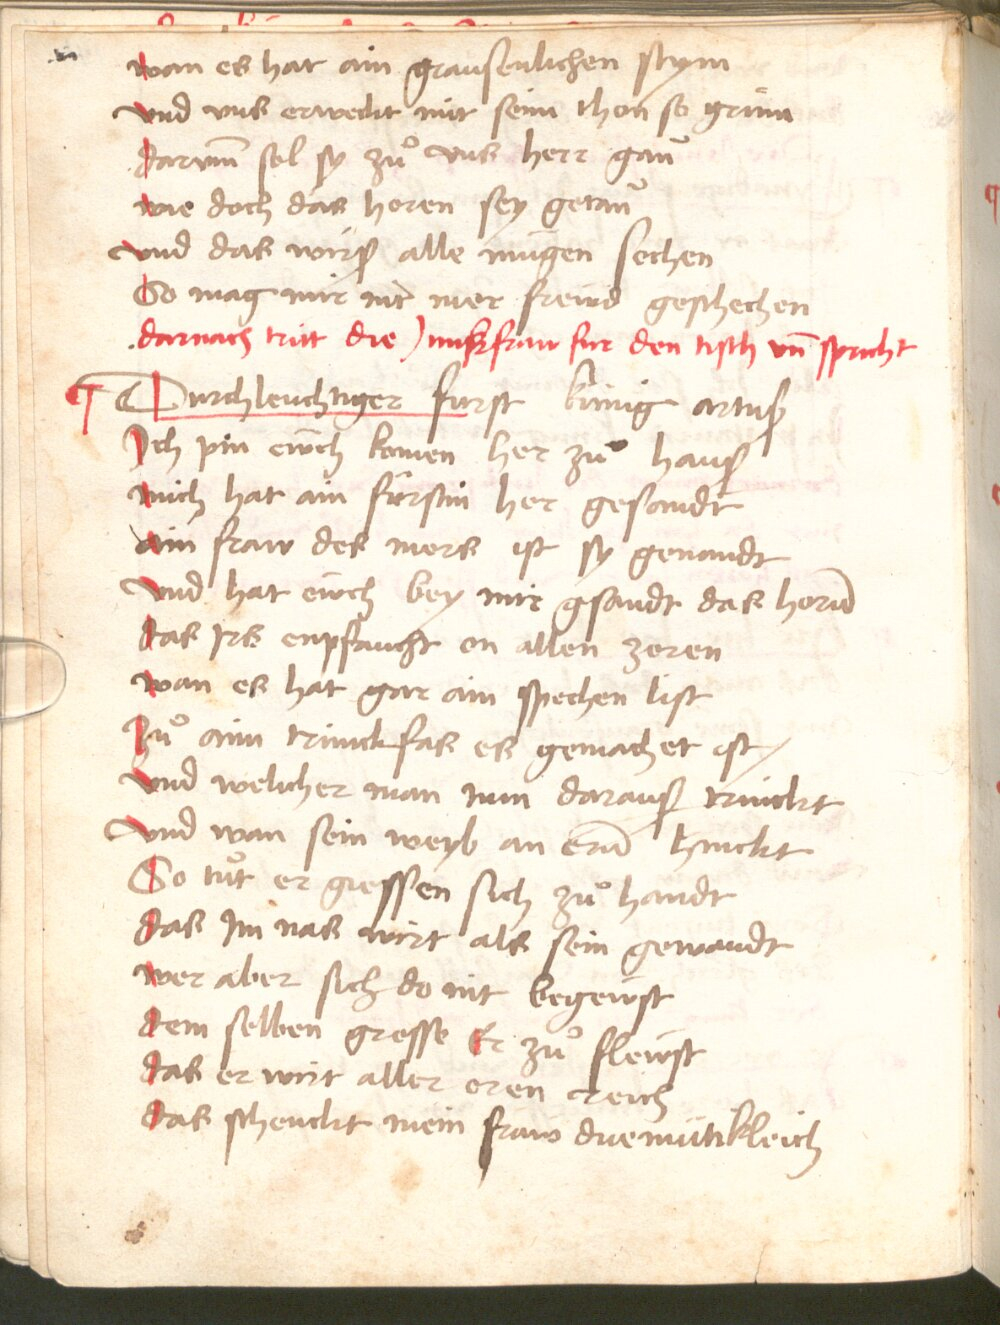 wan es hat ain grausenlichen stym
vnd vns erweckt mit seim thon so grim
darvm̄ sol sy zů vns herr gan̄
wie doch das horen sey getan̄
vnd das wirß alle mügen sechen
So mag mir nit mer freẅd geschechen
darnach tritt die Junkfraw fur den tisch vn̄ spricht
Durchleuchtiger fürst künig artuß
Ich pin eẅch komen her zů hauß
mich hat ain fürstin her gesandt
ain fraw des mers ist sy genandt
vnd hat eẅch bey mir gsandt das horn̄
das Irs enpfaucht on allen zoren
wan es hat gar ain spechen list
Zů aim trinckfas es gemachet ist
vnd welicher man nun darauß trinckt
vnd wan sein weyb an ern̄ hinckt
So tůt er giessen sich zů handt
das Im nas wirt als sein gewandt
wer aber sich do nit begeẅst
dem selben gresse Er zů fleẅst
das er wirt aller eren reich
das schenckt mein fraw diemütikleich